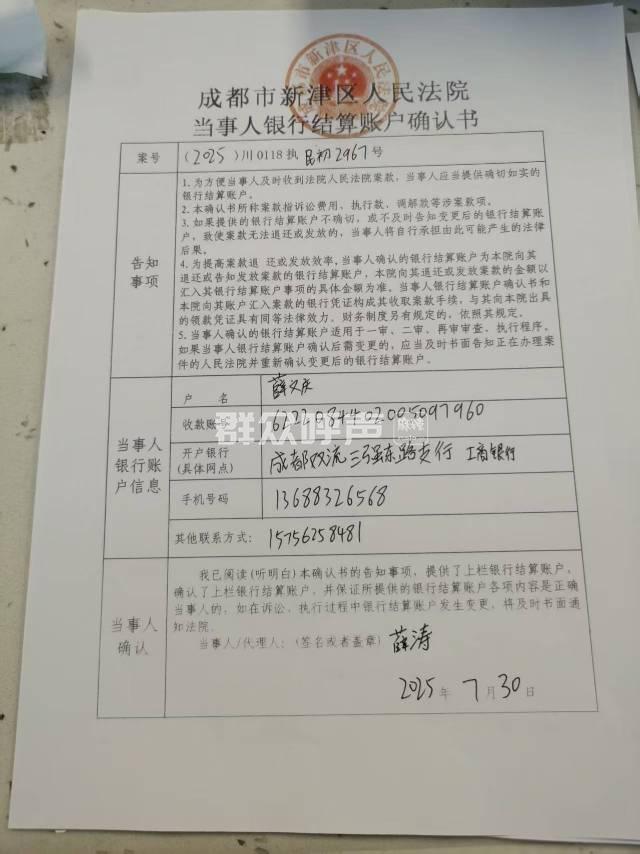 成都市新津区人民法院
当事人银行结算账户确认书
案号
(2025)川0118执民初2967号
告知
事项
1.为方便当事人及时收到法院人民法院案款，当事人应当提供确切如实的
银行结算账户。
2.本确认书所称案款指诉讼费用、执行款、调解款等涉案款项。
3.如果提供的银行结算账户不确切，或不及时告知变更后的银行结算账
户，致使案款无法退还或发放的，当事人将自行承担由此可能产生的法律
后果。
4.为提高案款退 还或发放效率,当事人确认的银行结算账户为本院向其
退还或告知发放案款的银行结算账户，本院向其退还或发放案款的金额以
汇入其银行结算账户事项的具体金额为准。当事人银行结算账户确认书和
本院向其账户汇入案款的银行凭证构成其收取案款手续，与其向本院出具
的领款凭证具有同等法律效力。财务制度另有规定的，依照其规定。
5.当事人确认的银行结算账户适用于一审、二审、再审审查、执行程序。
如果当事人银行结算账户确认后需变更的，应当及时书面告知正在办理案
件的人民法院并重新确认变更后的银行结算账户。
当事人
银行账
户信息
户 名
薛文庆
收款账号
6222084402005097960
开户银行
(具体网点)
成都双流三强东路支行 工商银行
手机号码
13688326568
其他联系方式：
15756258481
群众呼声
麻辣
当事人
确认
我已阅读(听明白)本确认书的告知事项，提供了上栏银行结算账户，
确认了上栏银行结算账户，并保证所提供的银行结算账户各项内容是正确
当事人的，如在诉讼、执行过程中银行结算账户发生变更，将及时书面通
知法院。
当事人/代理人：(签名或者盖章) 薛涛
2025年7月30日